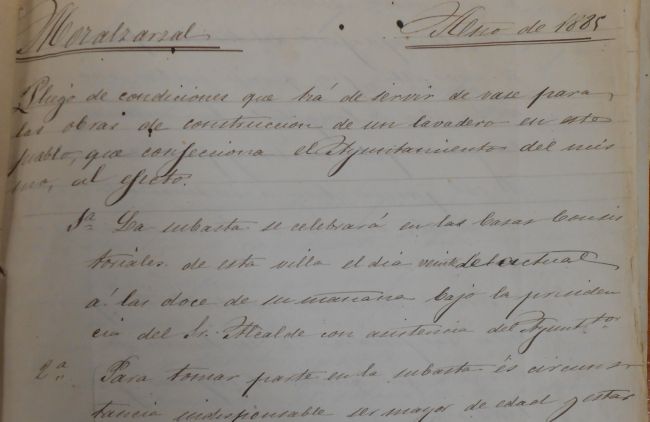 Moralzarzal Año de 1885
Pliego de condiciones que há de servir de vase para
las obras de construccion de un lavadero en este
pueblo, que confecciona el Ayuntamiento del mis
mo, al efecto.
1ª La subasta se celebrará en las Casas Consis
toriales de esta villa el dia veinte del actual
á las doce de su mañana bajo la presiden
cia del Sr. Alcalde con asistencia del Ayuntto
2ª Para tomar parte en la subasta és circuns
tancia indispensable ser mayor de edad y estar